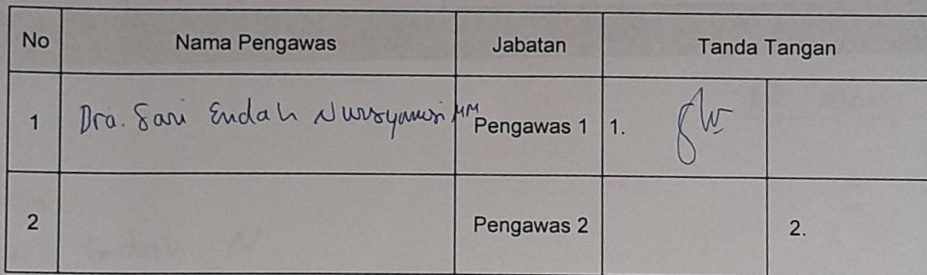 No Nama Pengawas Jabatan Tanda Tangan
1 Dra. Sari Endah Nursyamsi MM Pengawas 1 1.
2 Pengawas 2 2.